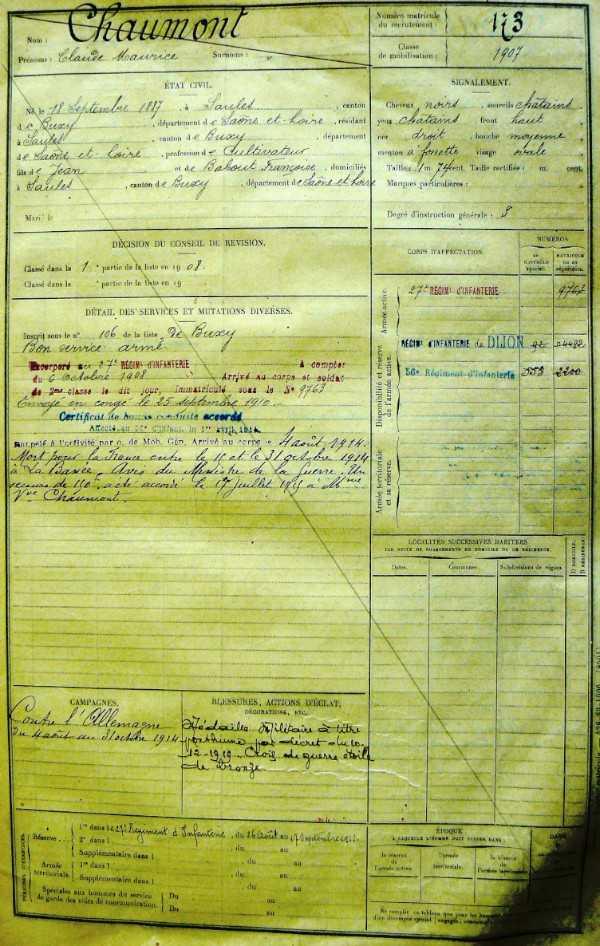 Nom : Chaumont
Prénoms : Claude Maurice Surnoms : „
Numéro matricule du recrutement : 173
Classe de mobilisation : 1907
ÉTAT CIVIL.
Né le 18 Septembre 1887, à Saules, canton
de Buxy, département de Saône et-Loire, résidant
à Saules, canton de Buxy, département
de Saône et-Loire, profession de Cultivateur
fils de Jean et de Bahout Françoise, domiciliés
à Saules, canton de Buxy, département de Saône et Loire
Marié le
SIGNALEMENT.
Cheveux noirs, sourcils châtains
yeux châtains front haut
nez droit, bouche moyenne
menton à fossette visage ovale
Taille : 1 m. 74 cent. Taille rectifiée : m. cent.
Marques particulières :
Degré d'instruction générale : 3
DÉCISION DU CONSEIL DE REVISION.
Classé dans la 1e partie de la liste en 1908.
Classé dans la „ partie de la liste en 19
DÉTAIL DES SERVICES ET MUTATIONS DIVERSES.
Inscrit sous le n° 106 de la liste de Buxy
Bon service armé
Incorporé au 27e RÉGIMENT D'INFANTERIE À compter
du 6 Octobre 1908 Arrivé au corps et soldat
de 2me classe le dit jour, Immatriculé sous le N° 9763
Envoyé en congé le 25 septembre 1910.
Certificat de bonne conduite accordé
Affecté au 56e d'Infant. le 1er avril 1914
Rappelé à l'activité par o. de Mob. Gén. Arrivé au corps le 4 août 1914.
Mort pour la France entre le 11 et le 31 octobre 1914
à La Bassée. Avis du Ministre de la Guerre. Un
secours de 150f a été accordé le 17 juillet 1915 à Mme
Vve Chaumont.
CORPS D'AFFECTATION.
NUMÉROS
AU CONTRÔLE spécial.
MATRICULE OU AU répertoire.
Armée active.
27e RÉGIMENT D'INFANTERIE 9763
Disponibilité et réserve de l'armée active.
RÉGIMt D'INFANTERIE de DIJON 92 04482
56e Régiment d'Infanterie 553 2200
Armée territoriale et sa réserve.
LOCALITÉS SUCCESSIVES HABITÉES
PAR SUITE DE CHANGEMENTS DE DOMICILE OU DE RÉSIDENCE.
Dates. Communes. Subdivisions de région. D domicile. R résidence.
CAMPAGNES.
Contre l'Allemagne
du 4 août au 31 octobre 1914
BLESSURES, ACTIONS D'ÉCLAT,
DÉCORATIONS, ETC.
Médaille Militaire à titre
posthume par décret du 10-
12-1919. Croix de guerre étoile
de bronze
Réserve
1re dans le 27e Régiment d'Infanterie, du 26 Août au 17 septembre 1912.
2e dans l du au
Supplémentaire dans l du au
Armée territoriale.
1re dans l du au
Supplémentaire dans l du au
Spéciales aux hommes du service
de garde des voies de communication.
Du au
Du au
ÉPOQUE
À LAQUELLE L'HOMME DOIT PASSER DANS :
la réserve de l'armée active.
l'armée territoriale.
la réserve de l'armée territoriale.